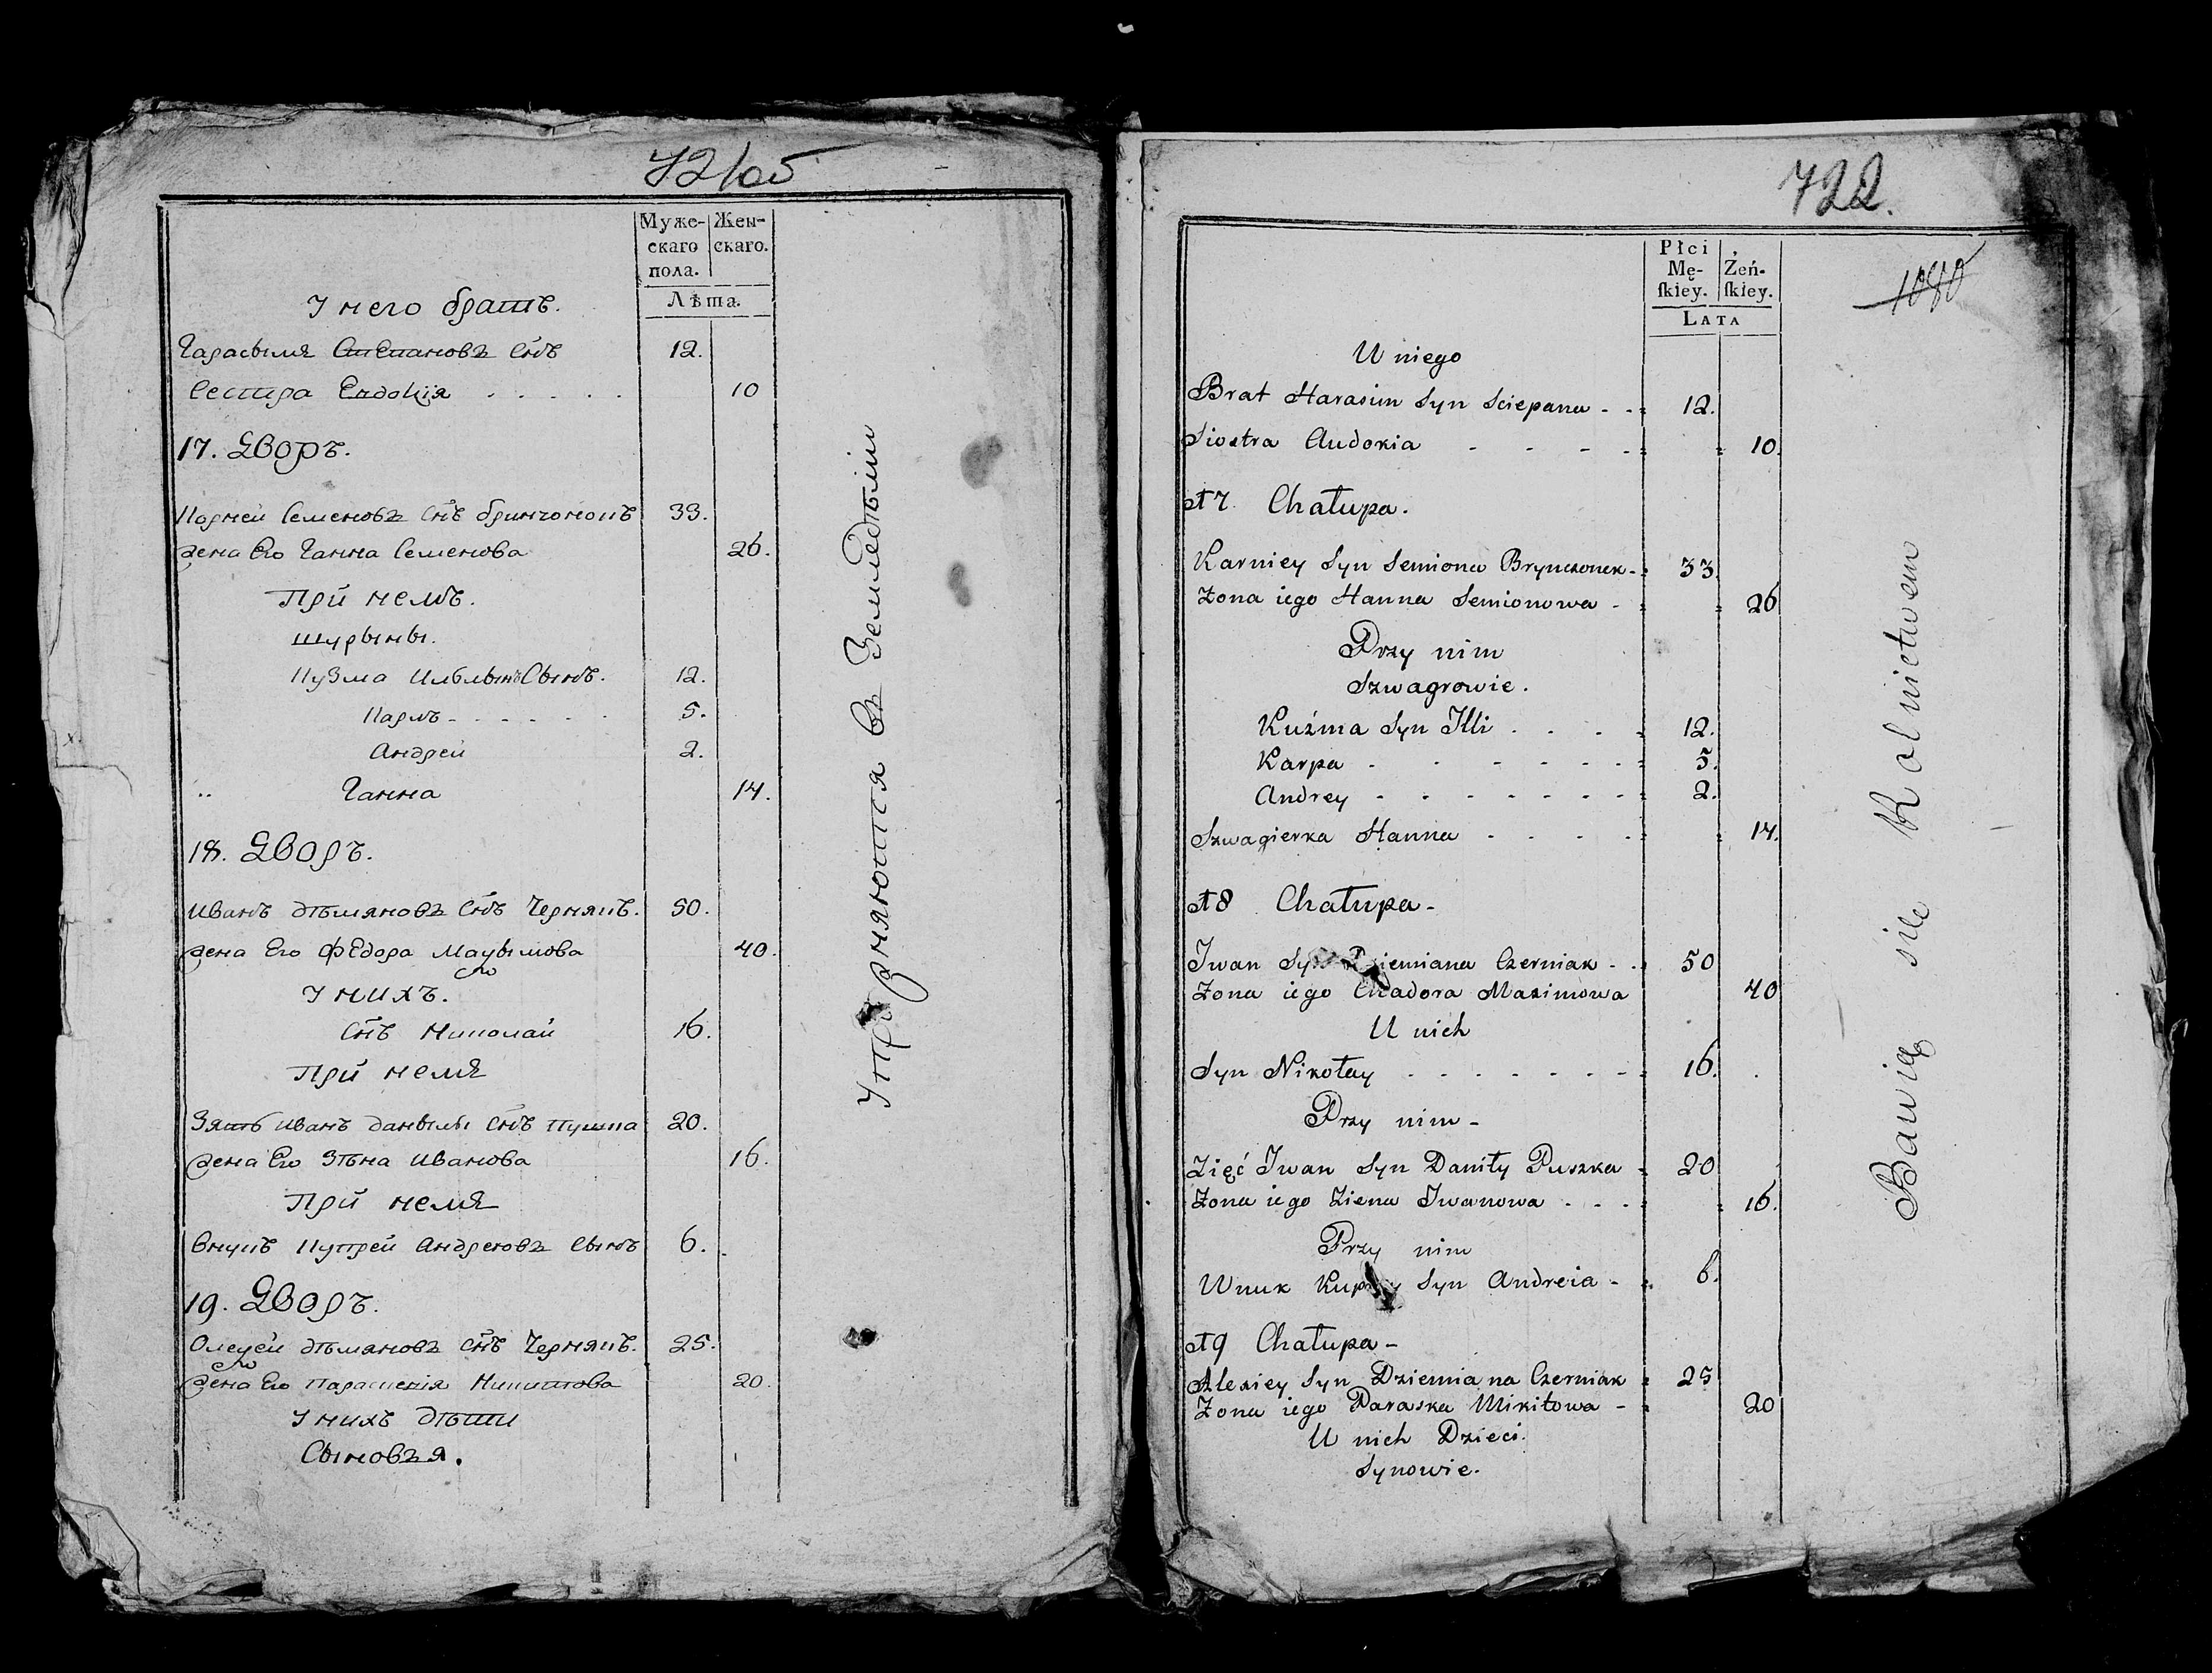 721об
Муже-
скаго
пола.
Жен-
скаго.
Лѣта.
У него братъ.
Гарасымъ Степановъ Снъ 12.
Сестра Евдокія . . . . . 10
17. Дворъ.
Корней Семеновъ Снъ Брынчонокъ 33.
Жена Его Ганна Семенова 26.
При немъ.
шурыны.
Кузма Ильынъ Сынъ. 12.
Карпъ - - - - - 5.
Андрей 2.
„ Ганна 14.
18. Дворъ.
Иванъ дѣмяновъ Снъ Чернякъ. 50.
Жена Его Федора Мацымова 40.
У нихъ.
Снъ Николай 16.
При немя
Зять Иванъ Данылы Снъ Пушка 20.
Жена Его Зѣна Иванова 16.
При немя
Внукъ Купрей Андреювъ Сынъ 6.
19. Дворъ.
Олецей дѣмяновъ Снъ Чернякъ. 25.
Жена Его Параскевія Никитова 20.
У нихъ дѣти
Сыновья.
Упражняются въ Земледѣліи
722.
1080
Płci
Mę-
ſkiey.
Żeń-
ſkiey.
LATA
U niego
Brat Harasim Syn Sciepana - - 12.
Siostra Audokia - - - - 10.
17. Chałupa.
Karniey Syn Semiona Brynczonek - 33.
Zona iego Hanna Semionowa - 26
Przy nim
Szwagrowie.
Kuźma Syn Illi . . . . 12.
Karpa - - - - - - 5.
Andrey - - - - - - 2.
Szwagierka Hanna - - - - 14.
18 Chałupa -
Iwan Syn Dziemiana Czerniak - . 50
Zona iego Chadora Maximowa 40
U nich
Syn Nikołay . . . . . . . 16.
Przy nim -
Zięć Iwan Syn Daniły Puszka - 20
Zona iego Ziena Iwanowa . . . 16.
Przy nim
Wnuk Kuprey Syn Andreia - 6.
19 Chałupa -
Alexiey Syn Dziemiana Czerniak 25
Zona iego Paraska Mikitowa - 20
U nich Dzieci.
Synowie.
Bawią sie Rolnictwem